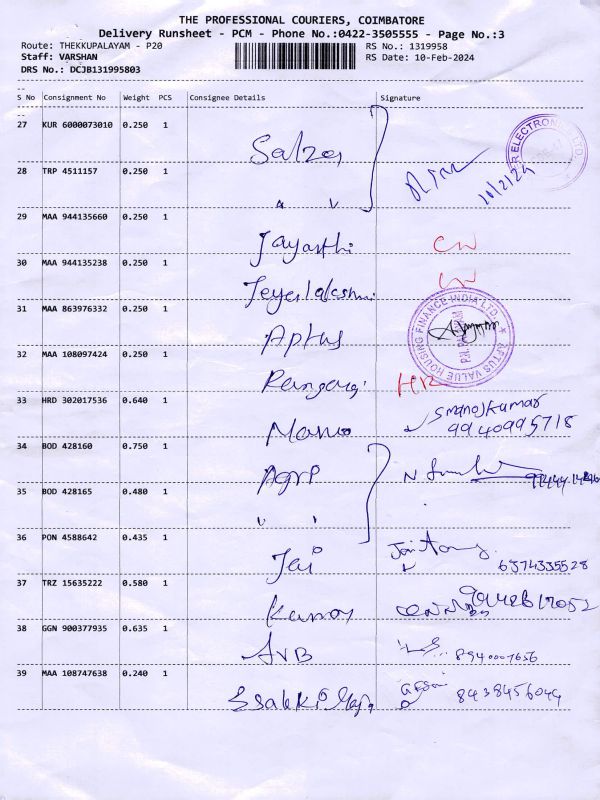 THE PROFESSIONAL COURIERS, COIMBATORE
Delivery Runsheet - PCM - Phone No.:0422-3505555 - Page No.:3
Route: THEKKUPALAYAM - P20 RS No.: 1319958
Staff: VARSHAN RS Date: 10-Feb-2024
DRS No.: DCJB131995803
S No Consignment No Weight PCS Consignee Details Signature
27 KUR 6000073010 0.250 1 Salzer
R ELECTRONICS LTD.
28 TRP 4511157 0.250 1 " " 10/2/24
29 MAA 944135660 0.250 1 Jayanthi
30 MAA 944135238 0.250 1 Jeyalakshmi
31 MAA 863976332 0.250 1 Aptus
APTUS VALUE HOUSING FINANCE INDIA LTD.
32 MAA 108097424 0.250 1
33 HRD 302017536 0.640 1 Mano Smanojkumar
9940995718
34 BOD 428160 0.750 1 AGRP
35 BOD 428165 0.480 1 " "
36 PON 4588642 0.435 1 Jai
6374335528
37 TRZ 15635222 0.580 1
38 GGN 900377935 0.635 1 AVB 8940007656
39 MAA 108747638 0.240 1 8438456049